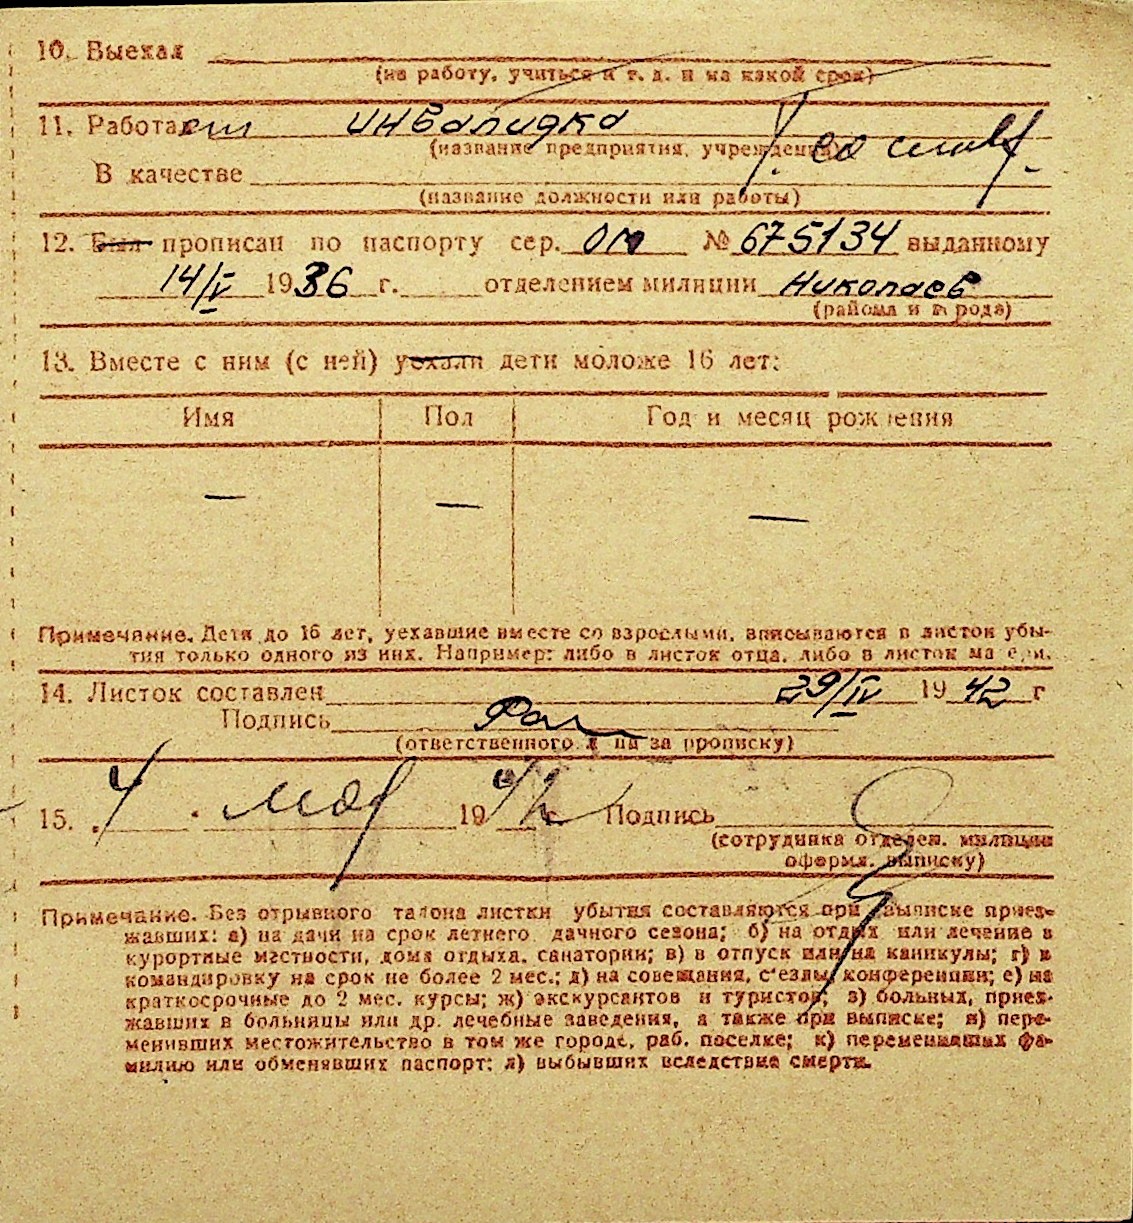 10. Выехал
(на работу, учиться и т. д. и на какой срок)
11. Работал инвалидка
(название предприятия, учреждения)
В качестве
(название должности или работы)
12. Был прописан по паспорту сер. ОМ № 675134 выданному
14/IV 1936 г. отделением милиции Николаев
(района и города)
13. Вместе с ним (с ней) уехали дети моложе 16 лет:
Имя Пол Год и месяц рождения
— — —
Примечание. Дети до 16 лет, уехавшие вместе со взрослыми, вписываются в листок убы-
тия только одного из них. Например: либо в листок отца, либо в листок матери.
14. Листок составлен 29/IV 1942 г
Подпись
(ответственного лица за прописку)
15. 4 мая 1942 г. Подпись
(сотрудника отделен. милиции
оформл. выписку)
Примечание. Без отрывного талона листки убытия составляются при выписке приез-
жавших: а) на дачи на срок летнего дачного сезона; б) на отдых или лечение в
курортные местности, дома отдыха, санатории; в) в отпуск или на каникулы; г) в
командировку на срок не более 2 мес.; д) на совещания, съезды, конференции; е) на
краткосрочные до 2 мес. курсы; ж) экскурсантов и туристов; з) больных, приез-
жавших в больницы или др. лечебные заведения, а также при выписке; и) пере-
менивших местожительство в том же городе, раб. поселке; к) переменивших фа-
милию или обменявших паспорт; л) выбывших вследствие смерти.